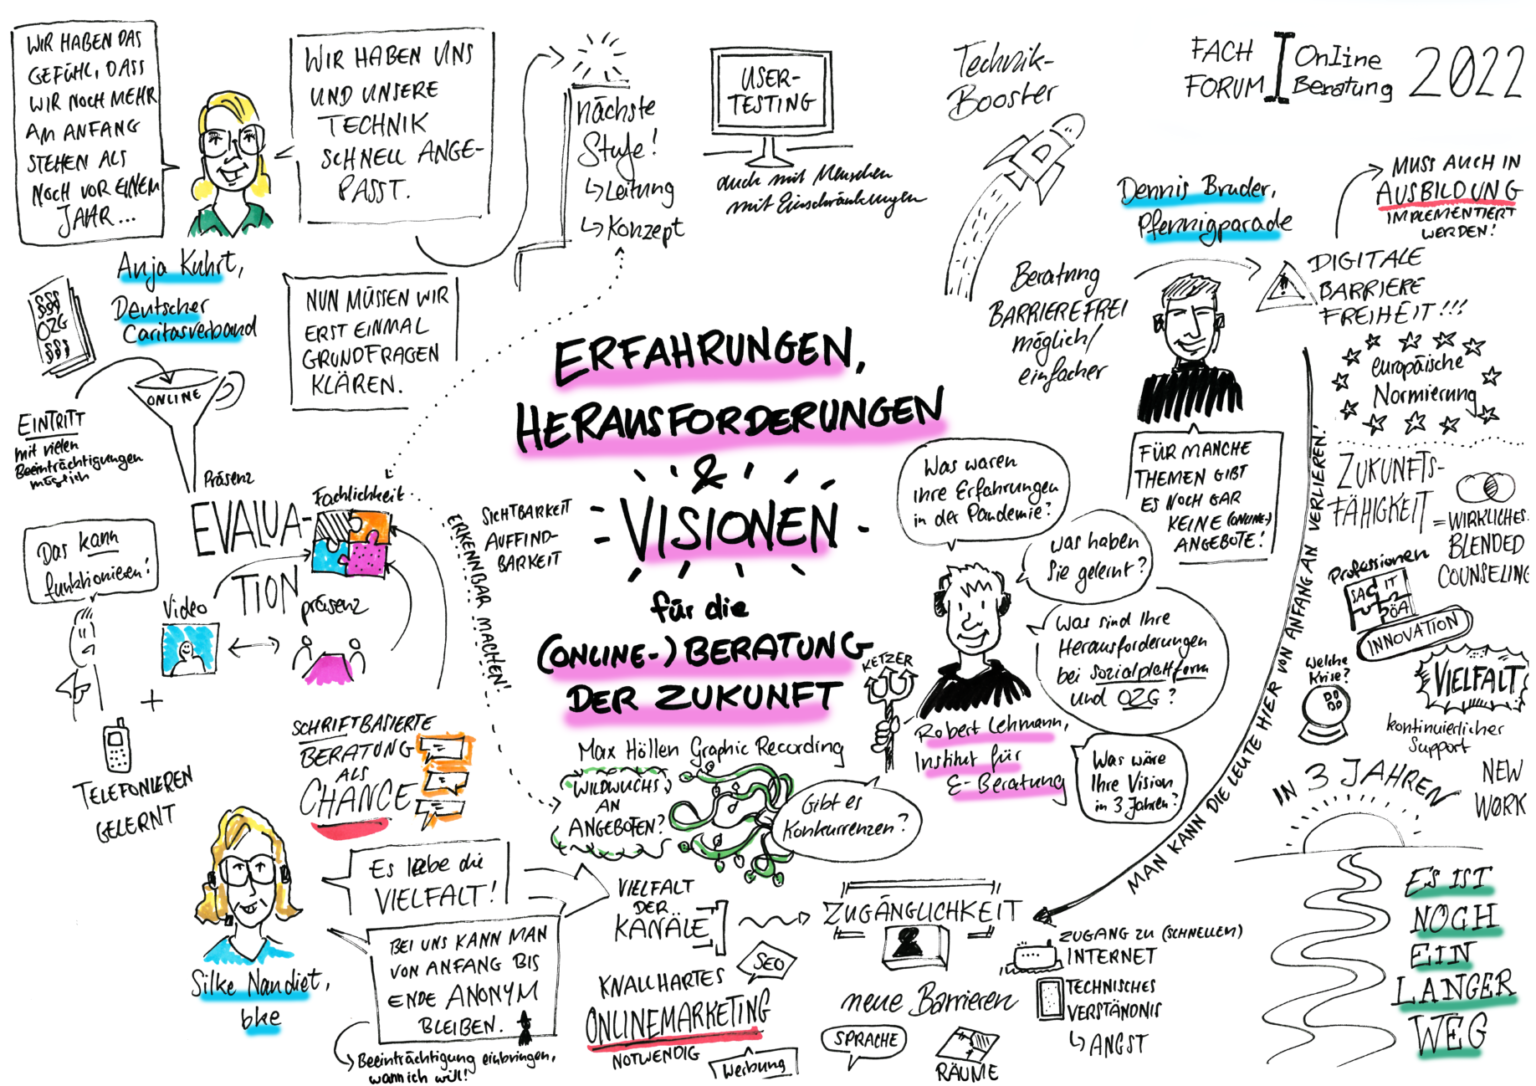 WIR HABEN DAS
GEFÜHL, DASS
WIR NOCH MEHR
AM ANFANG
STEHEN ALS
NOCH VOR EINEM
JAHR...
WIR HABEN UNS
UND UNSERE
TECHNIK
SCHNELL ANGE-
PASST.
Anja Kuhrt,
Deutscher
Caritasverband
NUN MÜSSEN WIR
ERST EINMAL
GRUNDFRAGEN
KLÄREN.
nächste
Stufe!
↳Leitung
↳Konzept
USER-
TESTING
auch mit Menschen
mit Einschränkungen
Technik-
Booster
FACH
FORUM
OnlIne
Beratung
2022
Dennis Bruder,
Pfennigparade
MUSS AUCH IN
AUSBILDUNG
IMPLEMENTIERT
WERDEN!
Beratung
BARRIEREFREI
möglich/
einfacher
DIGITALE
BARRIERE
FREIHEIT!!!
europäische
Normierung
FÜR MANCHE
THEMEN GIBT
ES NOCH GAR
KEINE (ONLINE-)
ANGEBOTE!
ZUKUNFTS-
FÄHIGKEIT
= WIRKLICHES
BLENDED
COUNSELING
Professionen
SA
IT
ÖA
INNOVATION
Welche
Krise?
VIELFALT
kontinuierlicher
Support
NEW
WORK
IN 3 JAHREN
ES IST
NOCH
EIN
LANGER
WEG
MAN KANN DIE LEUTE HIER VON ANFANG AN VERLIEREN!
§§§
OZG
§§§
EINTRITT
mit vielen
Beeinträchtigungen
möglich
ONLINE
Präsenz
EVALUA-
TION
Fachlichkeit
Das kann
funktionieren!
Video
präsenz
+
TELEFONIEREN
GELERNT
ERKENNBAR MACHEN!
SICHTBARKEIT
AUFFIND-
BARKEIT
ERFAHRUNGEN,
HERAUSFORDERUNGEN
&
VISIONEN
für die
(ONLINE-) BERATUNG
DER ZUKUNFT
Max Höllen Graphic Recording
Was waren
Ihre Erfahrungen
in der Pandemie?
Was haben
Sie gelernt?
Was sind Ihre
Herausforderungen
bei Sozialplattform
und OZG?
Was wäre
Ihre Vision
in 3 Jahren?
KETZER
Robert Lehmann,
Institut für
E-Beratung
SCHRIFTBASIERTE
BERATUNG
ALS
CHANCE
WILDWUCHS
AN
ANGEBOTEN?
Gibt es
Konkurrenzen?
Es lebe die
VIELFALT!
BEI UNS KANN MAN
VON ANFANG BIS
ENDE ANONYM
BLEIBEN.
↳ Beeinträchtigung einbringen,
wann ich will!
Silke Nandiet,
bke
VIELFALT
DER
KANÄLE
SEO
KNALLHARTES
ONLINEMARKETING
NOTWENDIG
Werbung
ZUGÄNGLICHKEIT
neue Barrieren
SPRACHE
RÄUME
ZUGANG ZU (SCHNELLEM)
INTERNET
TECHNISCHES
VERSTÄNDNIS
↳ ANGST